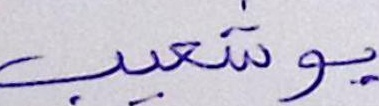 بوشعيب